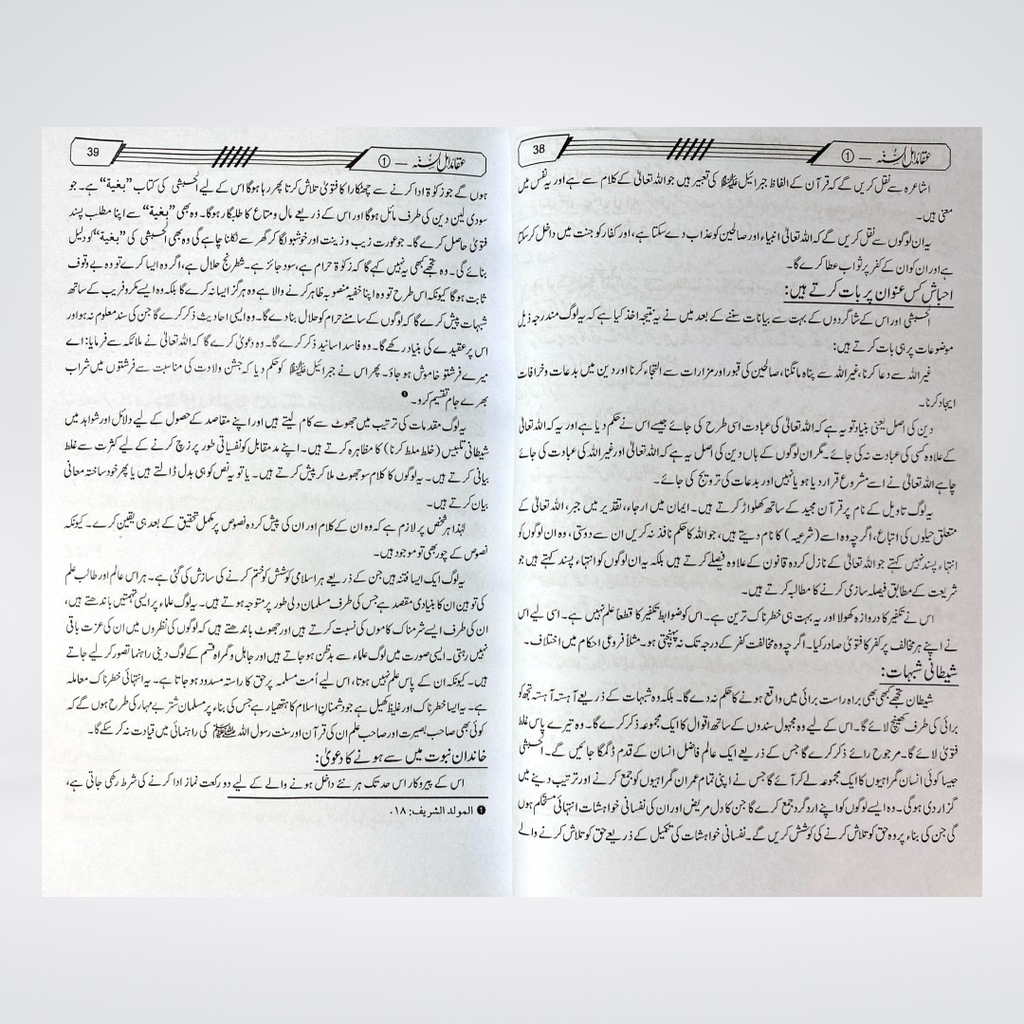 عقائد اہل السُّنّہ — ①
38
اشاعرہ سے نقل کریں گے کہ قرآن کے الفاظ جبرائیل علیہ السلام کی تعبیر ہیں جو اللہ تعالیٰ کے کلام سے ہے اور یہ نفس میں
معنی ہیں۔
یہ ان لوگوں سے نقل کریں گے کہ اللہ تعالیٰ انبیاء اور صالحین کو عذاب دے سکتا ہے، اور کفار کو جنت میں داخل کر سکتا
ہے اور ان کو ان کے کفر پر ثواب عطا کرے گا۔
احباش کس عنوان پر بات کرتے ہیں:
الحبشی اور اس کے شاگردوں کے بہت سے بیانات سننے کے بعد میں نے یہ نتیجہ اخذ کیا ہے کہ یہ لوگ مندرجہ ذیل
موضوعات پر ہی بات کرتے ہیں:
غیر اللہ سے دعا کرنا، غیر اللہ سے پناہ مانگنا، صالحین کی قبور اور مزارات سے التجاء کرنا اور دین میں بدعات و خرافات
ایجاد کرنا۔
دین کی اصل یعنی بنیاد تو یہ ہے کہ اللہ تعالیٰ کی عبادت اسی طرح کی جائے جیسے اس نے حکم دیا ہے اور یہ کہ اللہ
کے علاوہ کسی کی عبادت نہ کی جائے۔ مگر ان لوگوں کے ہاں دین کی اصل یہ ہے کہ اللہ تعالیٰ اور غیر اللہ کی عبادت کی جائے
چاہے اللہ تعالیٰ نے اسے مشروع قرار دیا ہو یا نہیں اور بدعات کی ترویج کی جائے۔
یہ لوگ تاویل کے نام پر قرآن مجید کے ساتھ کھلواڑ کرتے ہیں۔ ایمان میں ارجاء، تقدیر میں جبر، اللہ تعالیٰ کے
متعلق حیلوں کی اتباع، اگرچہ وہ اسے (شرعیہ) کا نام دیتے ہیں، جو اللہ کا حکم نافذ نہ کریں ان سے دوستی، وہ ان لوگوں کو
انتہاء پسند نہیں کہتے جو اللہ تعالیٰ کے نازل کردہ قانون کے علاوہ فیصلے کرتے ہیں بلکہ یہ ان لوگوں کو انتہاء پسند کہتے ہیں جو
شریعت کے مطابق فیصلہ سازی کرنے کا مطالبہ کرتے ہیں۔
اس نے تکفیر کا دروازہ کھولا اور یہ بہت ہی خطرناک ترین ہے۔ اس کو ضوابط تکفیر کا قطعاً علم نہیں ہے۔ اسی لیے اس
نے اپنے ہر مخالف پر کفر کا فتویٰ صادر کیا۔ اگرچہ وہ مخالفت کفر کے درجہ تک نہ پہنچتی ہو۔ مثلاً فروعی احکام میں اختلاف۔
شیطانی شبہات:
شیطان تجھے کبھی بھی براہ راست برائی میں واقع ہونے کا حکم نہ دے گا۔ بلکہ وہ شبہات کے ذریعے آہستہ آہستہ تجھ کو
برائی کی طرف کھینچ لائے گا۔ اس کے لیے وہ مجہول سندوں کے ساتھ اقوال کا ایک مجموعہ ذکر کرے گا۔ وہ تیرے پاس غلط
فتویٰ لائے گا۔ مرجوح رائے ذکر کرے گا جس کے ذریعے ایک عالم فاضل انسان کے قدم ڈگمگا جائیں گے۔ الحبشی
جیسا کوئی انسان گمراہیوں کا ایک مجموعہ لے کر آئے گا جس نے اپنی تمام عمر ان گمراہیوں کو جمع کرنے اور ترتیب دینے میں
گزار دی ہوگی۔ وہ ایسے لوگوں کو اپنے ارد گرد جمع کرے گا جن کا دل مریض اور ان کی نفسانی خواہشات انتہائی مستحکم ہوں
گی جن کی بناء پر وہ حق کو تلاش کرنے کی کوشش کریں گے۔ نفسانی خواہشات کی تکمیل کے ذریعے حق کو تلاش کرنے والے
عقائد اہل السُّنّہ — ①
39
ہوں گے جو زکوٰۃ ادا کرنے سے چھٹکارا کا فتویٰ تلاش کرتا پھر رہا ہوگا اس کے لیے الحبشی کی کتاب ”بغیة“ ہے۔ جو
سودی لین دین کی طرف مائل ہوگا اور اس کے ذریعے مال و متاع کا طلبگار ہوگا۔ وہ بھی ”بغیة“ سے اپنا مطلب پسند
فتویٰ حاصل کرے گا۔ جو عورت زیب و زینت اور خوشبو لگا کر گھر سے نکلنا چاہے گی وہ بھی الحبشی کی ”بغیة“ کو دلیل
بنائے گی۔ وہ تجھے بھی یہ نہیں کہے گا کہ زکوٰۃ حرام ہے، سود جائز ہے۔ شطرنج حلال ہے، اگر وہ ایسا کرے تو وہ بے وقوف
ثابت ہوگا کیونکہ اس طرح تو وہ اپنا خفیہ منصوبہ ظاہر کرنے والا ہے وہ ہرگز ایسا نہ کرے گا بلکہ وہ ایسے مکر و فریب کے ساتھ
شبہات پیش کرے گا کہ لوگوں کے سامنے حرام کو حلال بنا دے گا۔ وہ ایسی احادیث ذکر کرے گا جن کی سند معلوم نہ ہو اور
اس پر عقیدے کی بنیاد رکھے گا۔ وہ فاسد اسانید ذکر کرے گا۔ وہ دعویٰ کرے گا کہ اللہ تعالیٰ نے ملائکہ سے فرمایا: اے
میرے فرشتو خاموش ہو جاؤ۔ پھر اس نے جبرائیل علیہ السلام کو حکم دیا کہ جشن ولادت کی مناسبت سے فرشتوں میں شراب
بھرے جام تقسیم کرو۔ ❶
یہ لوگ مقدمات کی ترتیب میں جھوٹ سے کام لیتے ہیں اور اپنے مقاصد کے حصول کے لیے دلائل اور شواہد میں
شیطانی تلبیس (خلط ملط کرنا) کا مظاہرہ کرتے ہیں۔ اپنے مد مقابل کو نفسیاتی طور پر زچ کرنے کے لیے کثرت سے غلط
بیانی کرتے ہیں۔ یہ لوگوں کا کلام سو جھوٹ ملا کر پیش کرتے ہیں۔ یا تو یہ نص کو ہی بدل ڈالتے ہیں یا پھر خود ساختہ معانی
بیان کرتے ہیں۔
لہٰذا ہر شخص پر لازم ہے کہ وہ ان کے کلام اور ان کی پیش کردہ نصوص پر مکمل تحقیق کے بعد ہی یقین کرے۔ کیونکہ
نصوص کے چور بھی تو موجود ہیں۔
یہ لوگ ایک ایسا فتنہ ہیں جن کے ذریعے ہر اسلامی کوشش کو ختم کرنے کی سازش کی گئی ہے۔ ہر اس عالم اور طالب علم
کی توہین ان کا بنیادی مقصد ہے جس کی طرف مسلمان دلی طور پر متوجہ ہوتے ہیں۔ یہ لوگ علماء پر ایسی تہمتیں باندھتے ہیں،
ان کی طرف ایسے شرمناک کاموں کی نسبت کرتے ہیں اور جھوٹ باندھتے ہیں کہ لوگوں کی نظروں میں ان کی عزت باقی
نہیں رہتی۔ ایسی صورت میں لوگ علماء سے بدظن ہو جاتے ہیں اور جاہل و گمراہ قسم کے لوگ دینی راہنما تصور کر لیے جاتے
ہیں۔ کیونکہ ان کے پاس علم نہیں ہوتا، اس لیے اُمت مسلمہ پر حق کا راستہ مسدود ہو جاتا ہے۔ یہ انتہائی خطرناک معاملہ
ہے۔ یہ ایسا خطرناک اور غلیظ کھیل ہے جو دشمنان اسلام کا ہتھیار ہے جس کی بناء پر مسلمان شتر بے مہار کی طرح ہوں گے کہ
کوئی بھی صاحب بصیرت اور صاحب علم ان کی قرآن اور سنت رسول اللہ ﷺ کی راہنمائی میں قیادت نہ کر سکے گا۔
خاندان نبوت میں سے ہونے کا دعویٰ:
اس کے پیروکار اس حد تک ہر نئے داخل ہونے والے کے لیے دو رکعت نماز ادا کرنے کی شرط رکھی جاتی ہے،
❶ المولد الشریف: ۱۸۰